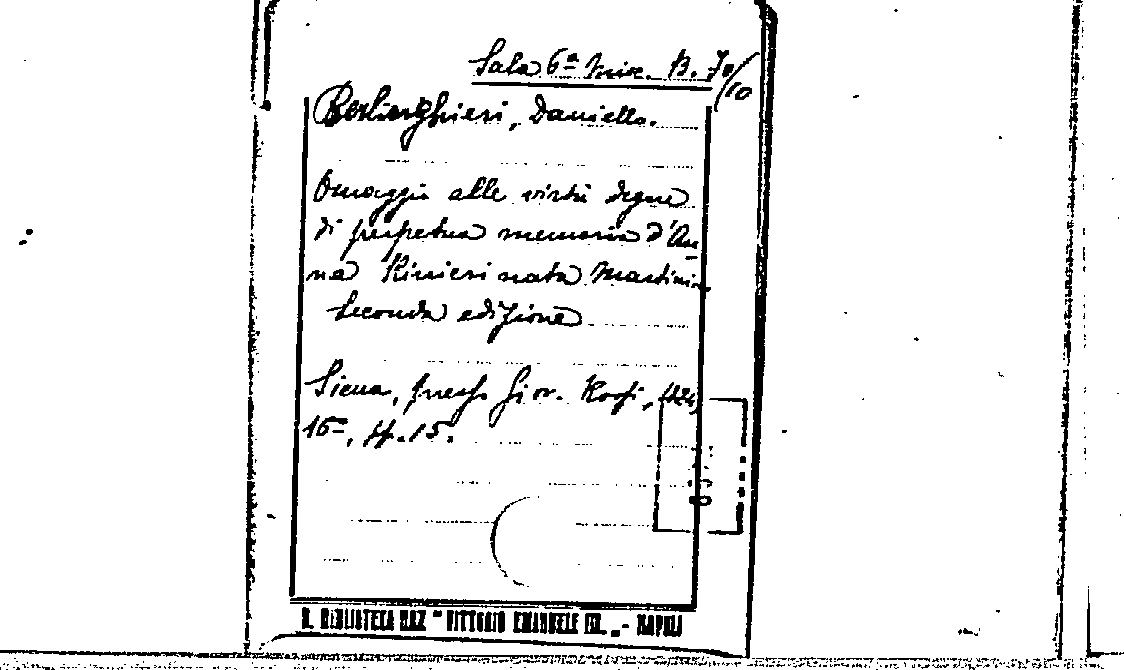 Sala 6ª Misc. B. 70/10
Berlinghieri, Daniello.
Omaggio alle virtù degne
di perpetua memoria d'An
na Rinieri nata Martini.
Seconda edizione
Siena, presso Giov. Rossi, 1824,
16º, pp. 15.
R. BIBLIOTECA NAZ. "VITTORIO EMANUELE III." - NAPOLI